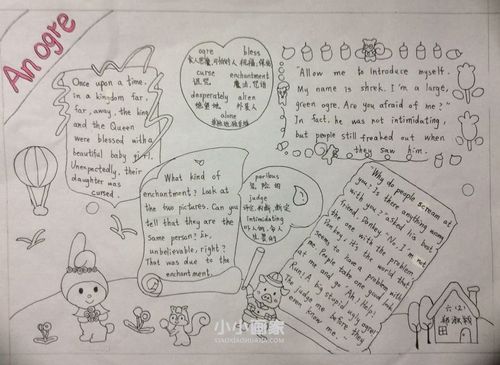 An ogre
Once upon a time,
in a kingdom far,
far, away, the king
and the Queen
were blessed with a
beautiful baby girl.
Unexpectedly, their
daughter was
cursed.
ogre bless
食人恶魔,可怕的人 祝福,保佑
curse enchantment
诅咒 魔法,咒语
desperately alien
绝望地 外星人
alone
"Allow me to introduce myself.
My name is shrek. I'm a large,
green ogre. Are you afraid of me?"
In fact, he was not intimidating,
but people still freaked out when
they saw him.
What kind of
enchantment? Look at
the two pictures. Can you
tell that they are the
same person?
unbelievable, right?
That was due to the
enchantment.
perilous
危险的
judge
评定,判断,裁定
intimidating
吓人的,令人
生畏的
"Why do people scream at
you? Is there anything wrong
with you?" asked his best
friend, Donkey. "No. I'm not
the one with the problem
Donkey. It's the world that
seems to have a problem with
me. People take one good look
at me and go 'Ah! Help!
Run! A big stupid ugly ogre!'
The judge me before they
even know me."
六(2)
小小画家
XIAOXIAOHUAJIA.COM